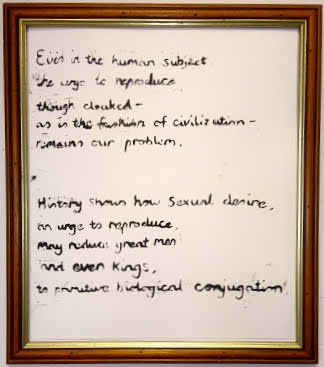 Even in the human subject
the urge to reproduce
though cloaked -
as is the fashion of civilization -
remains our problem.
History shows how sexual desire,
an urge to reproduce,
may reduce great men
and even kings,
to primitive biological conjugation.